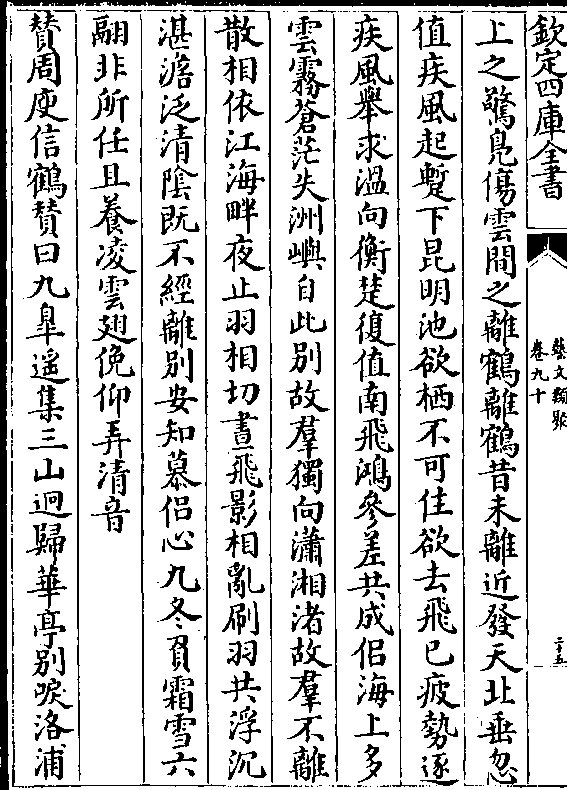 欽定四庫全書
藝文類聚
卷九十
二十五
上之驚鳬傷雲間之離鶴離鶴昔未離近發天北垂忽
值疾風起蹔下昆明池欲栖不可住欲去飛已疲勢逐
疾風舉求溫向衡楚復值南飛鴻參差共成侣海上多
雲霧蒼茫失洲嶼自此别故羣獨向瀟湘渚故羣不離
散相依江海畔夜止羽相切晝飛影相亂刷羽共浮沉
湛澹泛清陰既不經離别安知慕侣心九冬負霜雪六
翮非所任且養凌雲翅俛仰弄清音
贊周庾信鶴贊曰九臯遥集三山迥歸華亭别唳洛浦